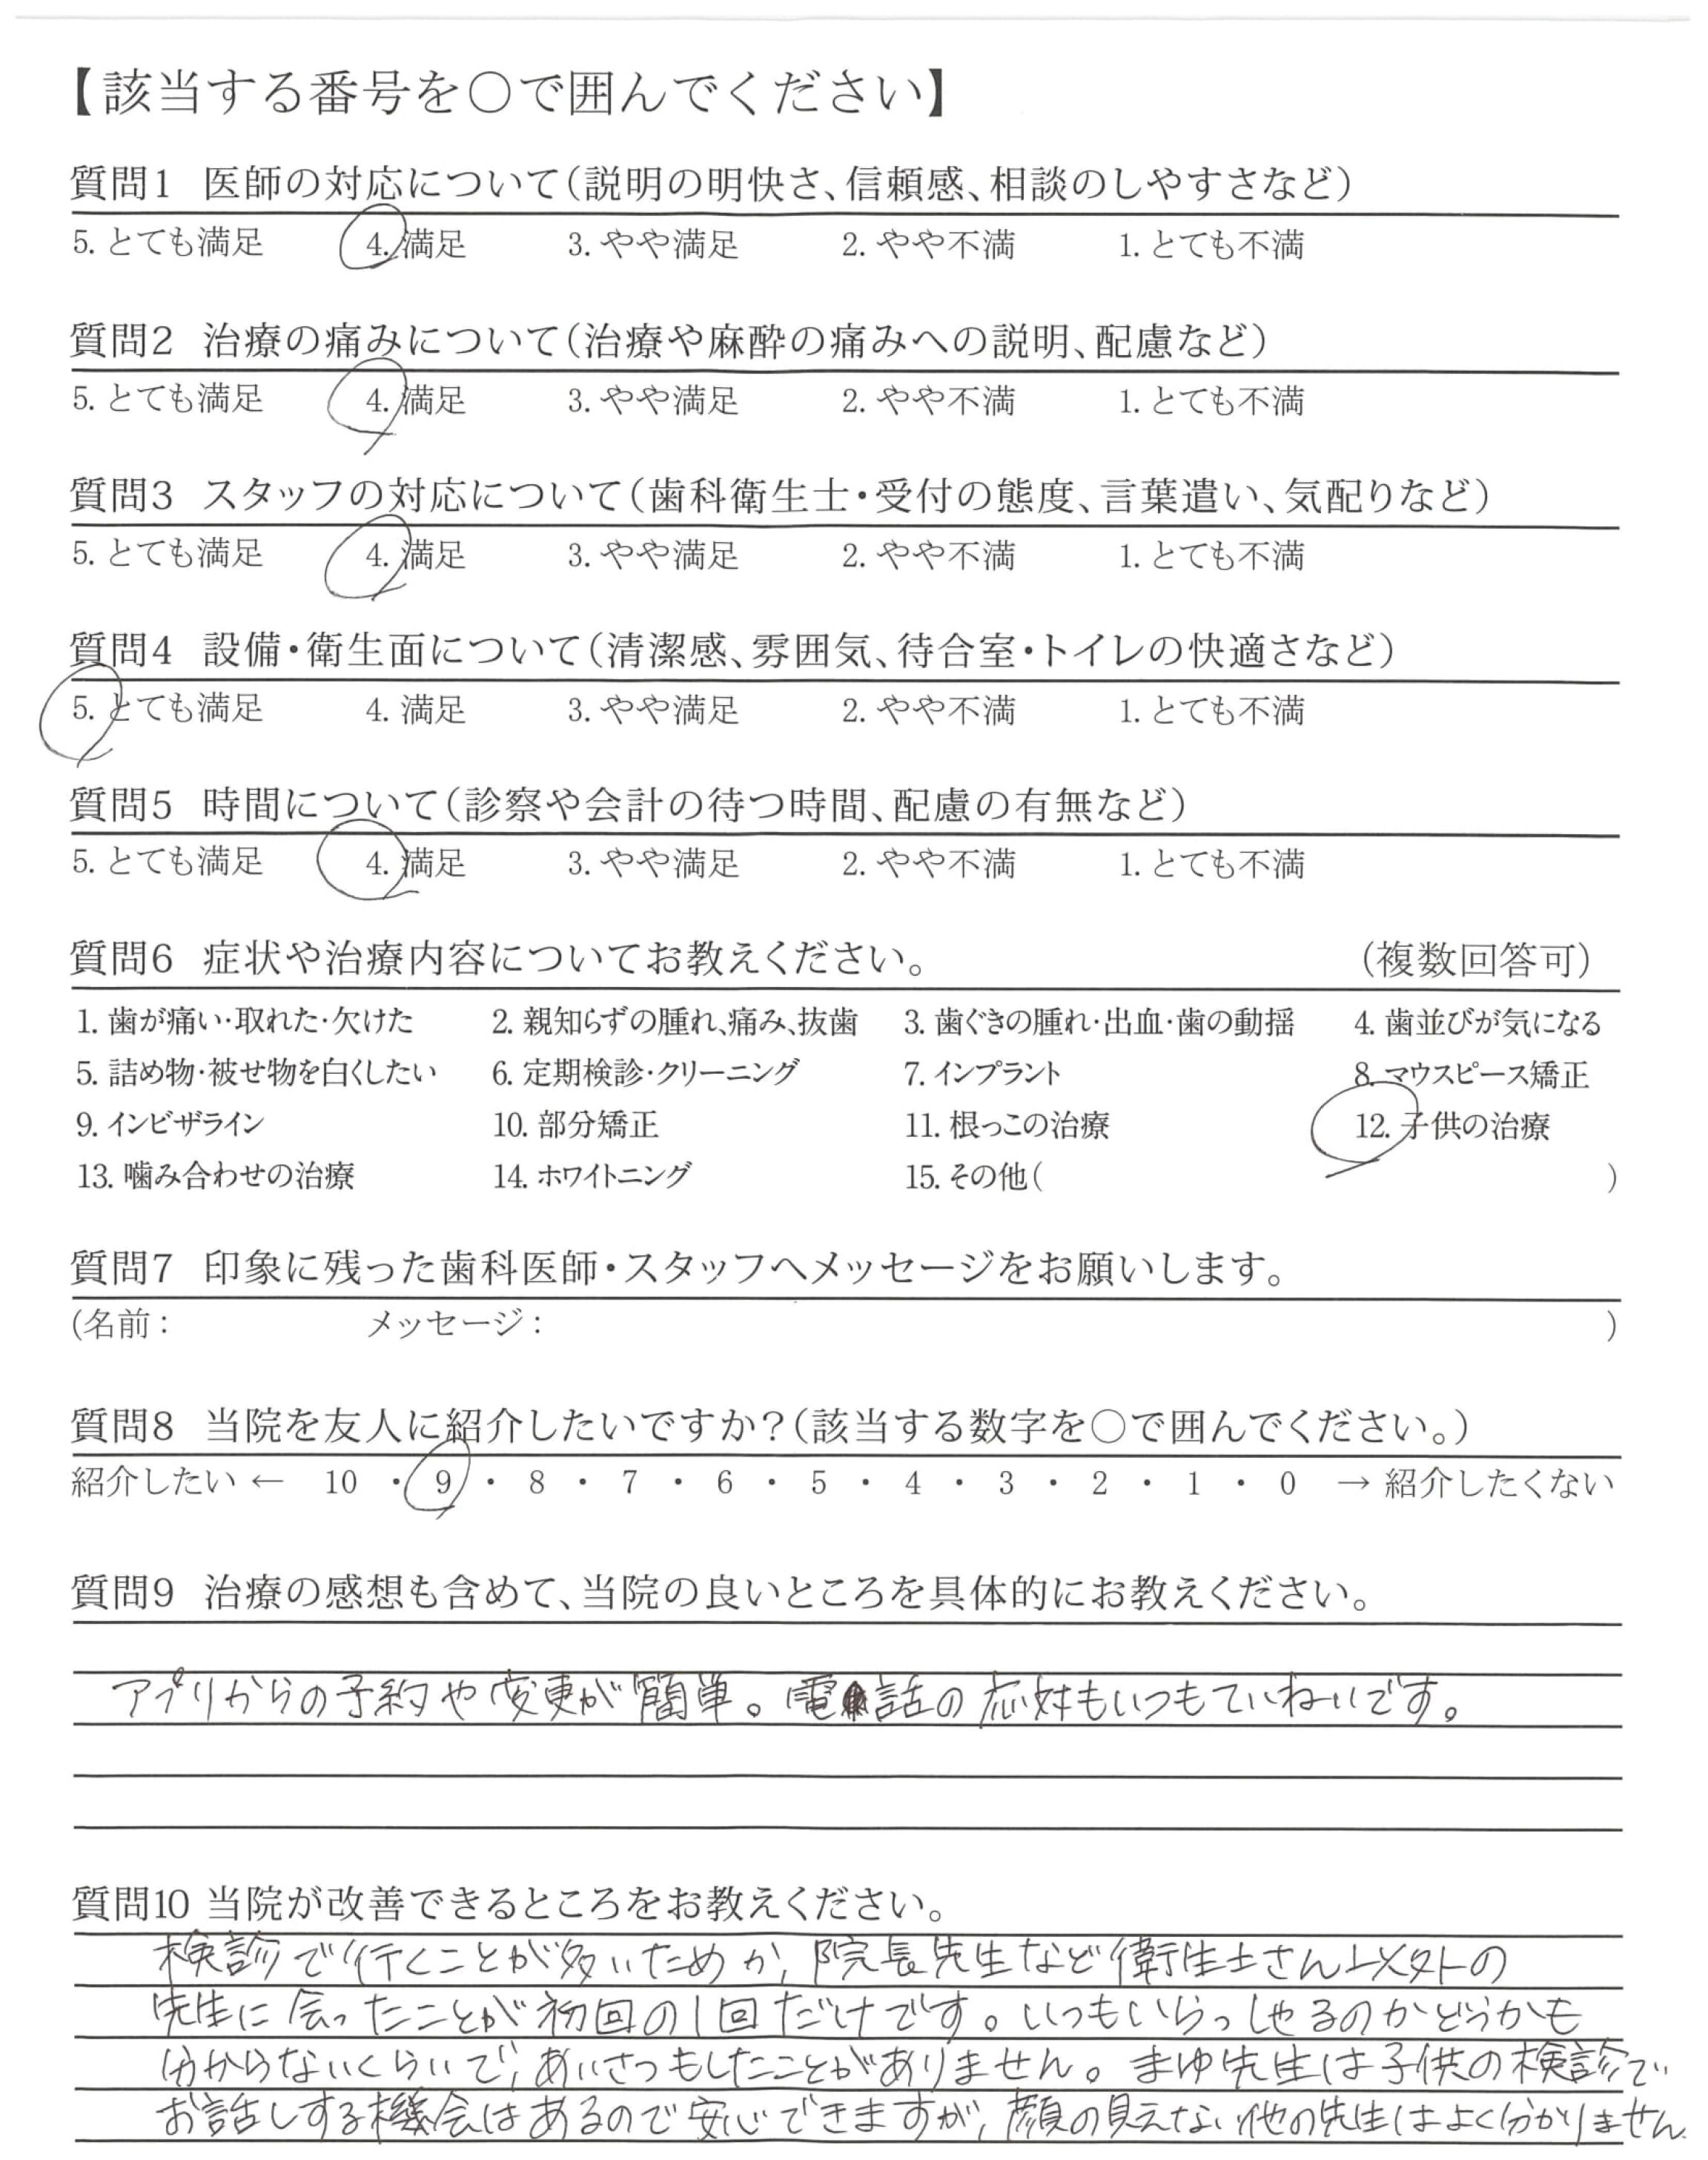 【該当する番号を〇で囲んでください】
質問1 医師の対応について(説明の明快さ、信頼感、相談のしやすさなど)
5. とても満足 4. 満足 3. やや満足 2. やや不満 1. とても不満
質問2 治療の痛みについて(治療や麻酔の痛みへの説明、配慮など)
5. とても満足 4. 満足 3. やや満足 2. やや不満 1. とても不満
質問3 スタッフの対応について(歯科衛生士・受付の態度、言葉遣い、気配りなど)
5. とても満足 4. 満足 3. やや満足 2. やや不満 1. とても不満
質問4 設備・衛生面について(清潔感、雰囲気、待合室・トイレの快適さなど)
5. とても満足 4. 満足 3. やや満足 2. やや不満 1. とても不満
質問5 時間について(診察や会計の待つ時間、配慮の有無など)
5. とても満足 4. 満足 3. やや満足 2. やや不満 1. とても不満
質問6 症状や治療内容についてお教えください。 (複数回答可)
1. 歯が痛い・取れた・欠けた 2. 親知らずの腫れ、痛み、抜歯 3. 歯ぐきの腫れ・出血・歯の動揺 4. 歯並びが気になる
5. 詰め物・被せ物を白くしたい 6. 定期検診・クリーニング 7. インプラント 8. マウスピース矯正
9. インビザライン 10. 部分矯正 11. 根っこの治療 12. 子供の治療
13. 噛み合わせの治療 14. ホワイトニング 15. その他( )
質問7 印象に残った歯科医師・スタッフへメッセージをお願いします。
(名前: メッセージ: )
質問8 当院を友人に紹介したいですか?(該当する数字を〇で囲んでください。)
紹介したい ← 10 ・ 9 ・ 8 ・ 7 ・ 6 ・ 5 ・ 4 ・ 3 ・ 2 ・ 1 ・ 0 → 紹介したくない
質問9 治療の感想も含めて、当院の良いところを具体的にお教えください。
アプリからの予約や変更が簡単。電話の応対もいつもていねいです。
質問10 当院が改善できるところをお教えください。
検診で行くことが多いためか、院長先生など衛生士さん以外の
先生に会ったことが初回の1回だけです。いつもいらっしゃるのかどうかも
分からないくらいで、あいさつもしたことがありません。まゆ先生は子供の検診で
お話しする機会はあるので安心できますが、顔の見えない他の先生はよく分かりません